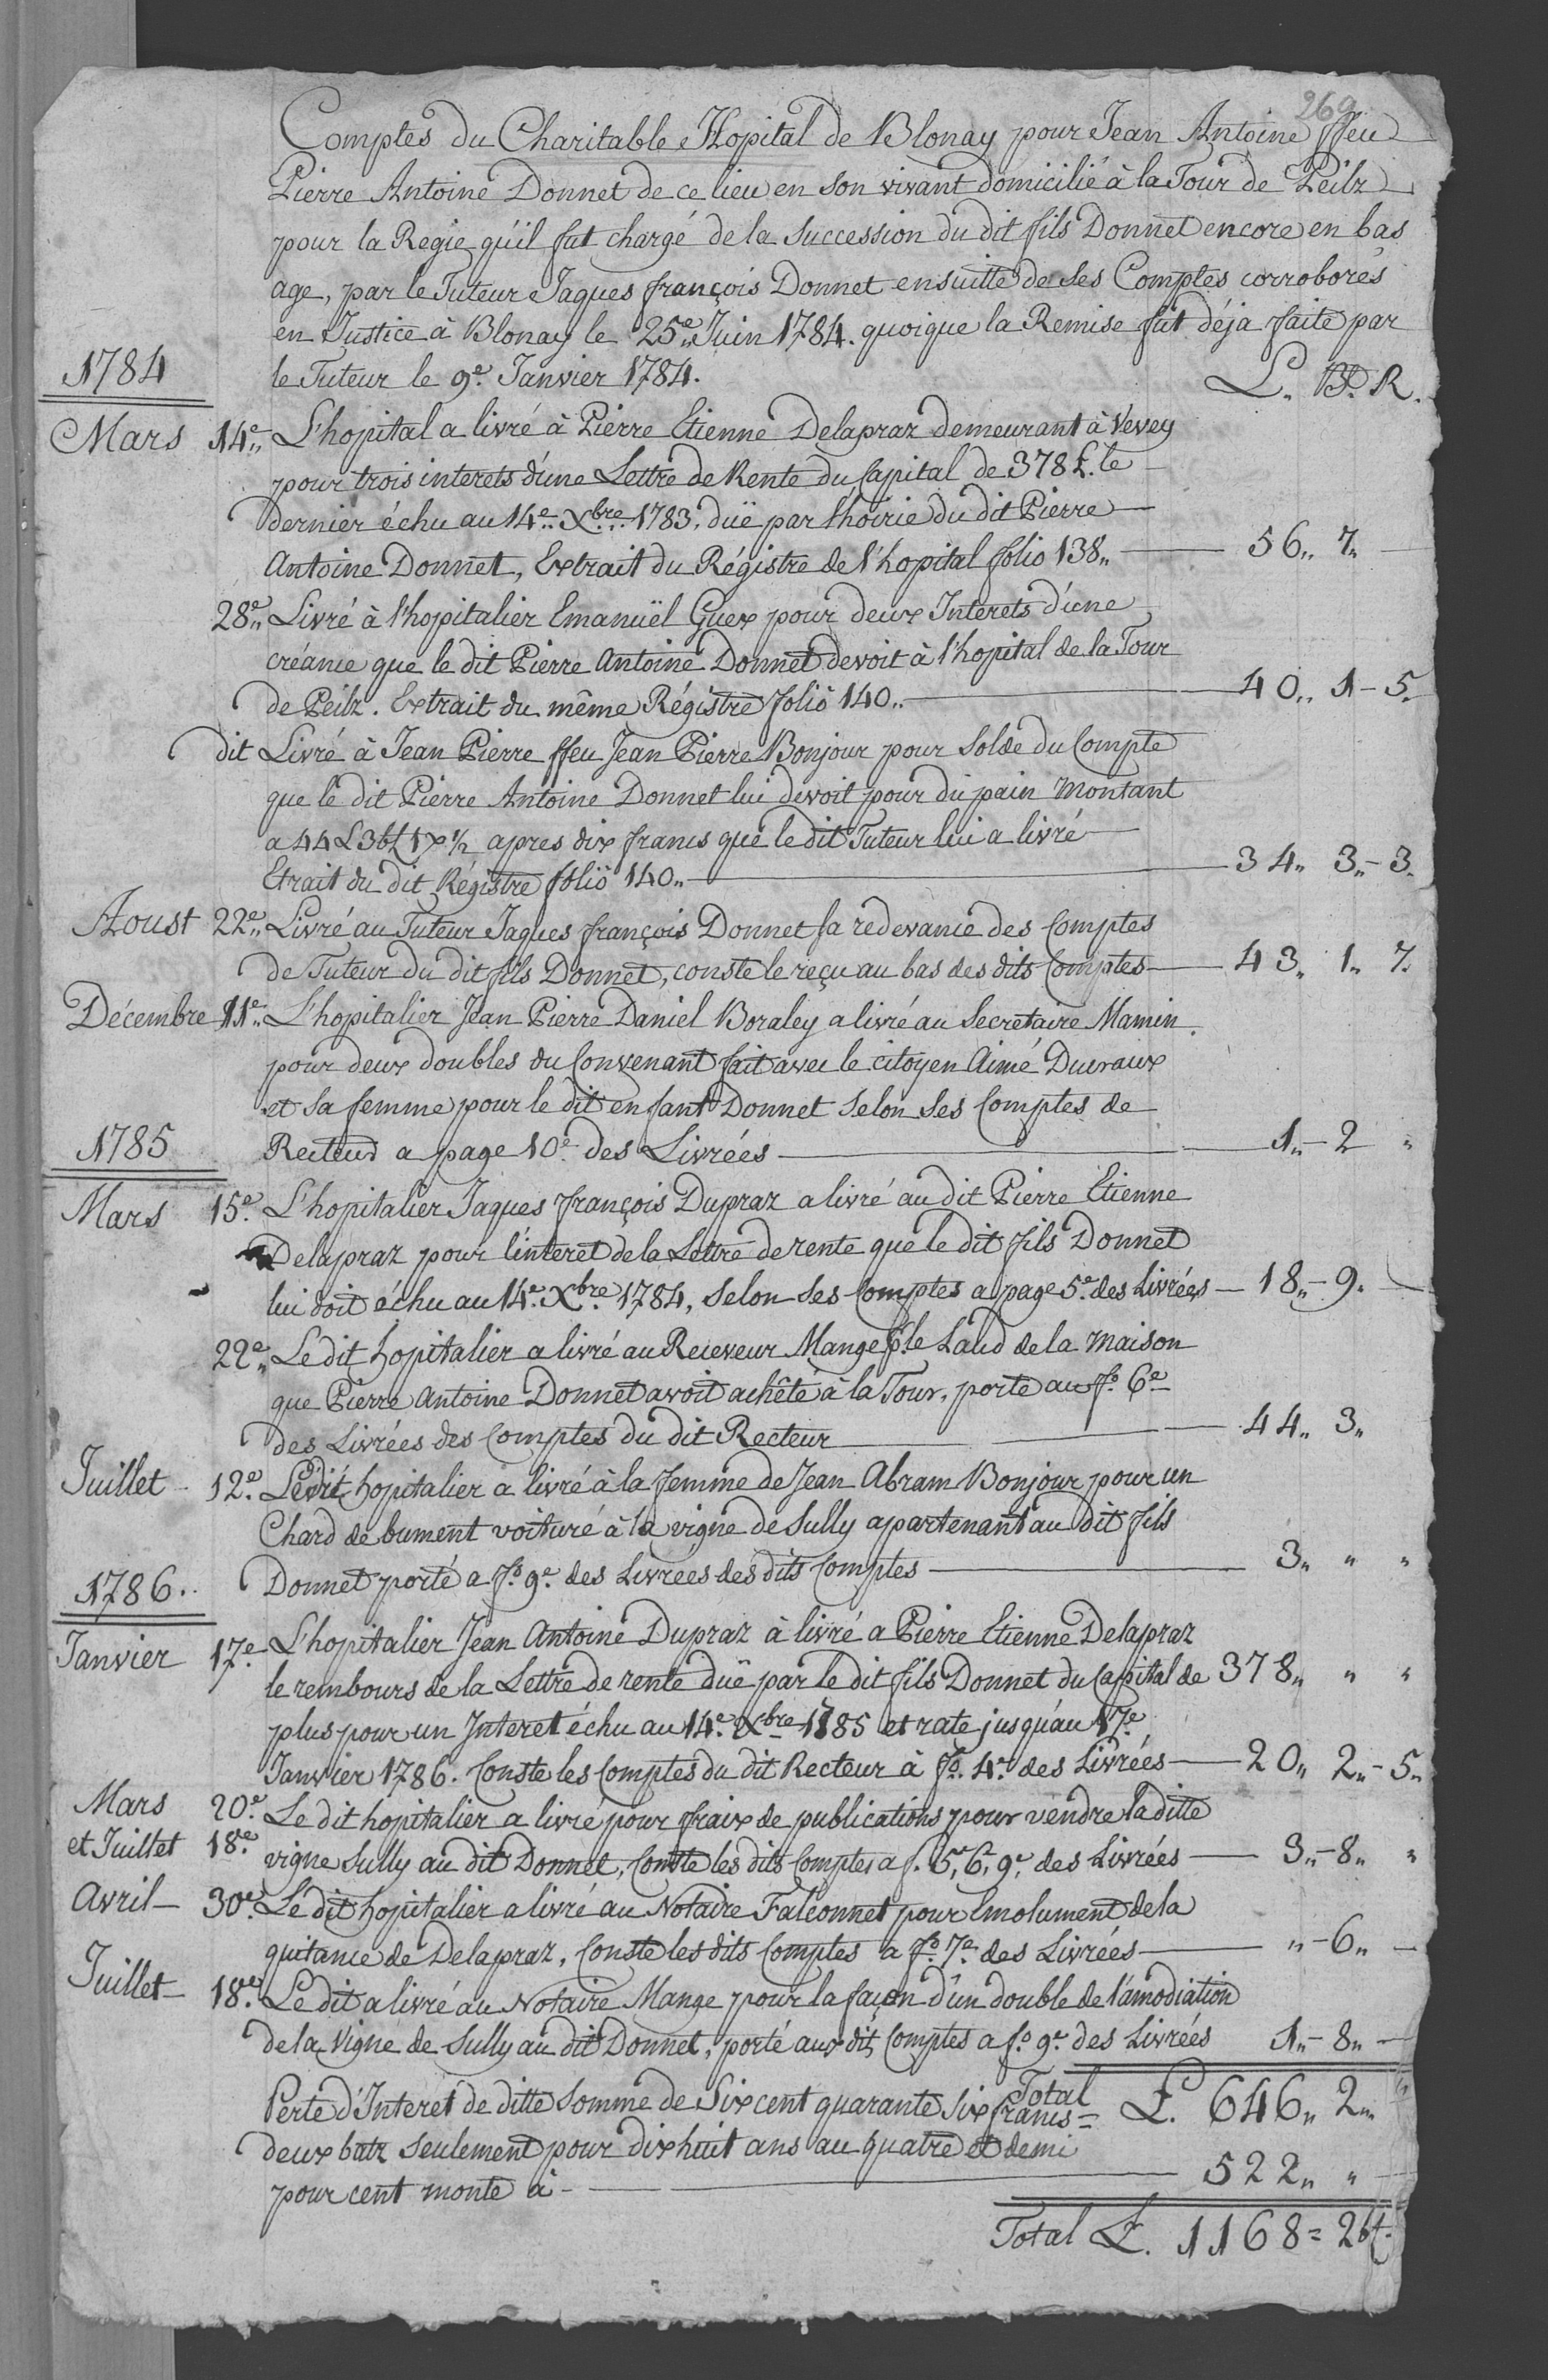 269
Comptes du Charitable Hopital de Blonay pour Jean Antoine ffeu
Pierre Antoine Donnet de ce lieu en son vivant domicilié à la Tour de Peilz
pour la Regie qu'il fut chargé de la succession du dit fils Donnet encore en bas
age, par le Tuteur Jaques françois Donnet ensuitte de ses Comptes corroborés
en Justice à Blonay le 25e Juin 1784. quoique la Remise fut déja faite par
1784 le Tuteur le 9e. Janvier 1784. L. B. R.
Mars 14e„ L'hopital a livré à Pierre Etienne Delapraz demeurant à Vevey
pour trois interets d'une Lettre de Rente du Capital de 378 £. le
dernier échu au 14e. Xbre 1783, duë par l'hoirie du dit Pierre
Antoine Donnet, Extrait du Régistre de l'hopital folio 138„ — 56„ 7„ —
28e„ Livré à l'hopitalier Emanuël Guex pour deux Interets d'une
créance que le dit Pierre Antoine Donnet devoit à l'hopital de la Tour
de Peilz. Extrait du même Régistre folio 140„ — 40„ 1 - 5.
dit Livré à Jean Pierre ffeu Jean Pierre Bonjour pour Solde du Compte
que le dit Pierre Antoine Donnet lui devoit pour du pain montant
a 44 L 3 bt 1 x ½ apres dix francs que le dit Tuteur lui a livré
Etrait du dit Régistre folio 140„ — 34„ 3„ - 3.
Aoust 22e„ Livré au Tuteur Jaques françois Donnet sa redevance des Comptes
de Tuteur du dit fils Donnet, conste le reçu au bas des dits Comptes — 43„ 1„ 7.
Décembre 11e„ L'hopitalier Jean Pierre Daniel Boraley a livré au Secretaire Mamin
pour deux doubles du Convenant fait avec le citoyen Aimé Ducraux
et sa femme pour le dit enfant Donnet selon ses Comptes de
1785 Recteur a page 10e. des Livrées — 1„ - 2 „
Mars 15e. L'hopitalier Jaques françois Dupraz a livré au dit Pierre Etienne
Delapraz pour l'interet de la Lettre de rente que le dit fils Donnet
lui doit échu au 14e. Xbre. 1784, selon ses Comptes a page 5e. des Livrées — 18„ - 9. —
22e„ Le dit hopitalier a livré au Receveur Mange p.r le Laud de la maison
que Pierre Antoine Donnet avoit achêté à la Tour, porté au fo. 6e
des Livrées des Comptes du dit Recteur — 44„ 3„
Juillet 12e. Le dit hopitalier a livré à la femme de Jean Abram Bonjour pour un
Chard de bument voituré à la vigne de Sully apartenant au dit fils
1786. Donnet porté a fo. 9e. des Livrées des dits Comptes — 3„ „ „
Janvier 17e L'hopitalier Jean Antoine Dupraz à livré a Pierre Etienne Delapraz
le rembours de la Lettre de rente duë par le dit fils Donnet du Capital de 378„ „ „
plus pour un Interet échu au 14e. Xbre 1785 et rate jusqu'au 17e
Janvier 1786. Conste les Comptes du dit Recteur à fo. 4e. des Livrées — 20„ 2„ - 5„
Mars 20e. Le dit hopitalier a livré pour fraix de publications pour vendre la ditte
et Juillet 18e. vigne Sully au dit Donnet, Conste les dits Comptes a f. 5e, 6e, 9e. des Livrées — 3„ - 8„ „
Avril — 30e. Le dit hopitalier a livré au Notaire Falconnet pour Emolument de la
quitance de Delapraz, Conste les dits Comptes a fo. 7e. des Livrées — „ - 6„ —
Juillet — 18e. Le dit a livré au Notaire Mange pour la façon d'un double de l'amodiation
de la Vigne de Sully au dit Donnet, porté aux dits Comptes a fo. 9e. des Livrées 1„ - 8„ —
Total £. 646„ 2„
Perte d'Interet de ditte somme de Six cent quarante six francs
deux batz seulement pour dix huit ans au quatre et demi
pour cent monte à — 522„ „ —
Total £. 1168 = 2 bt.